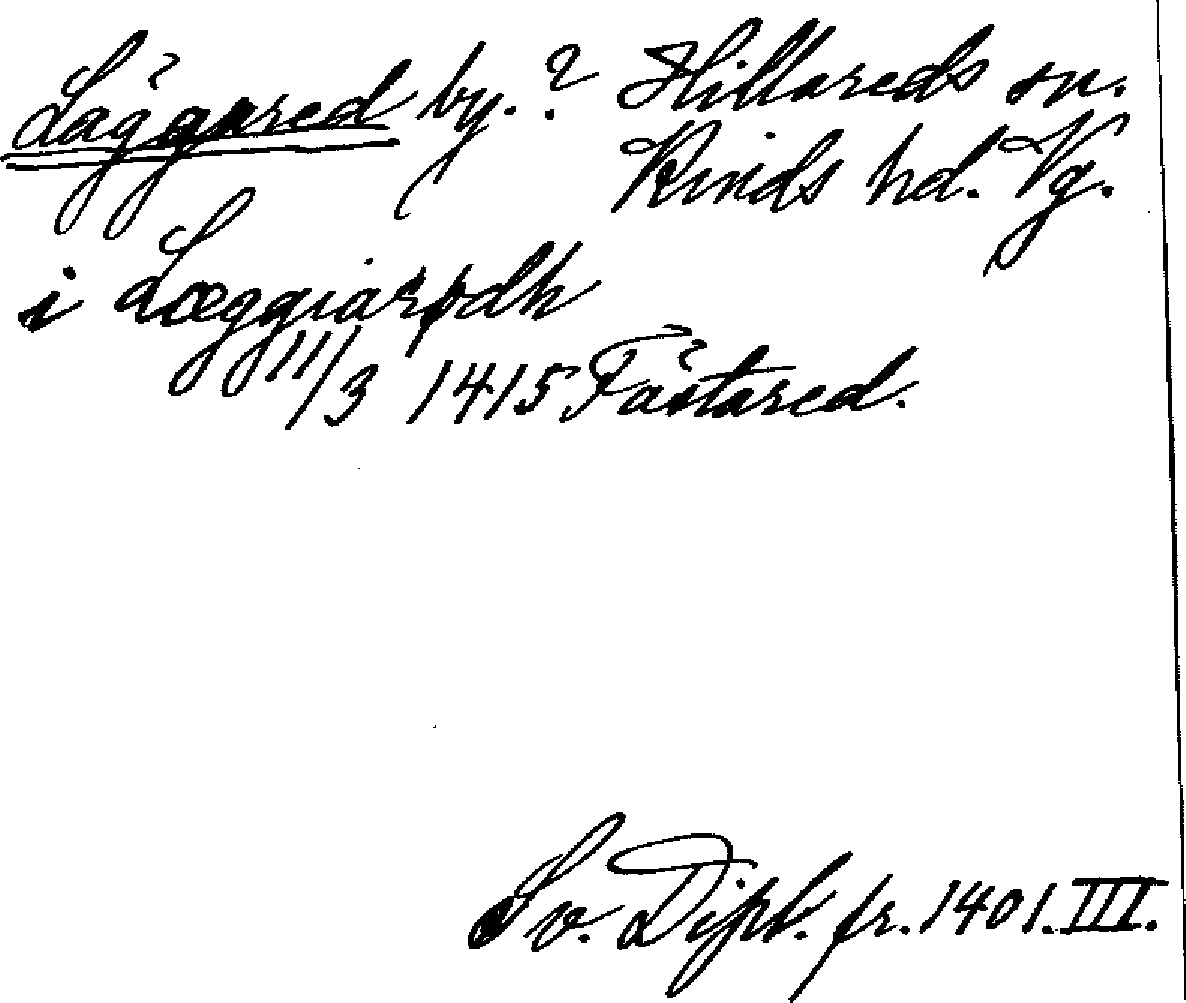 Läggared by.? Hillareds sn.
Kinds hd. Vg.
i Læggiarødh
11/3 1415 Fästared.
Sv. Dipl. fr. 1401. III.